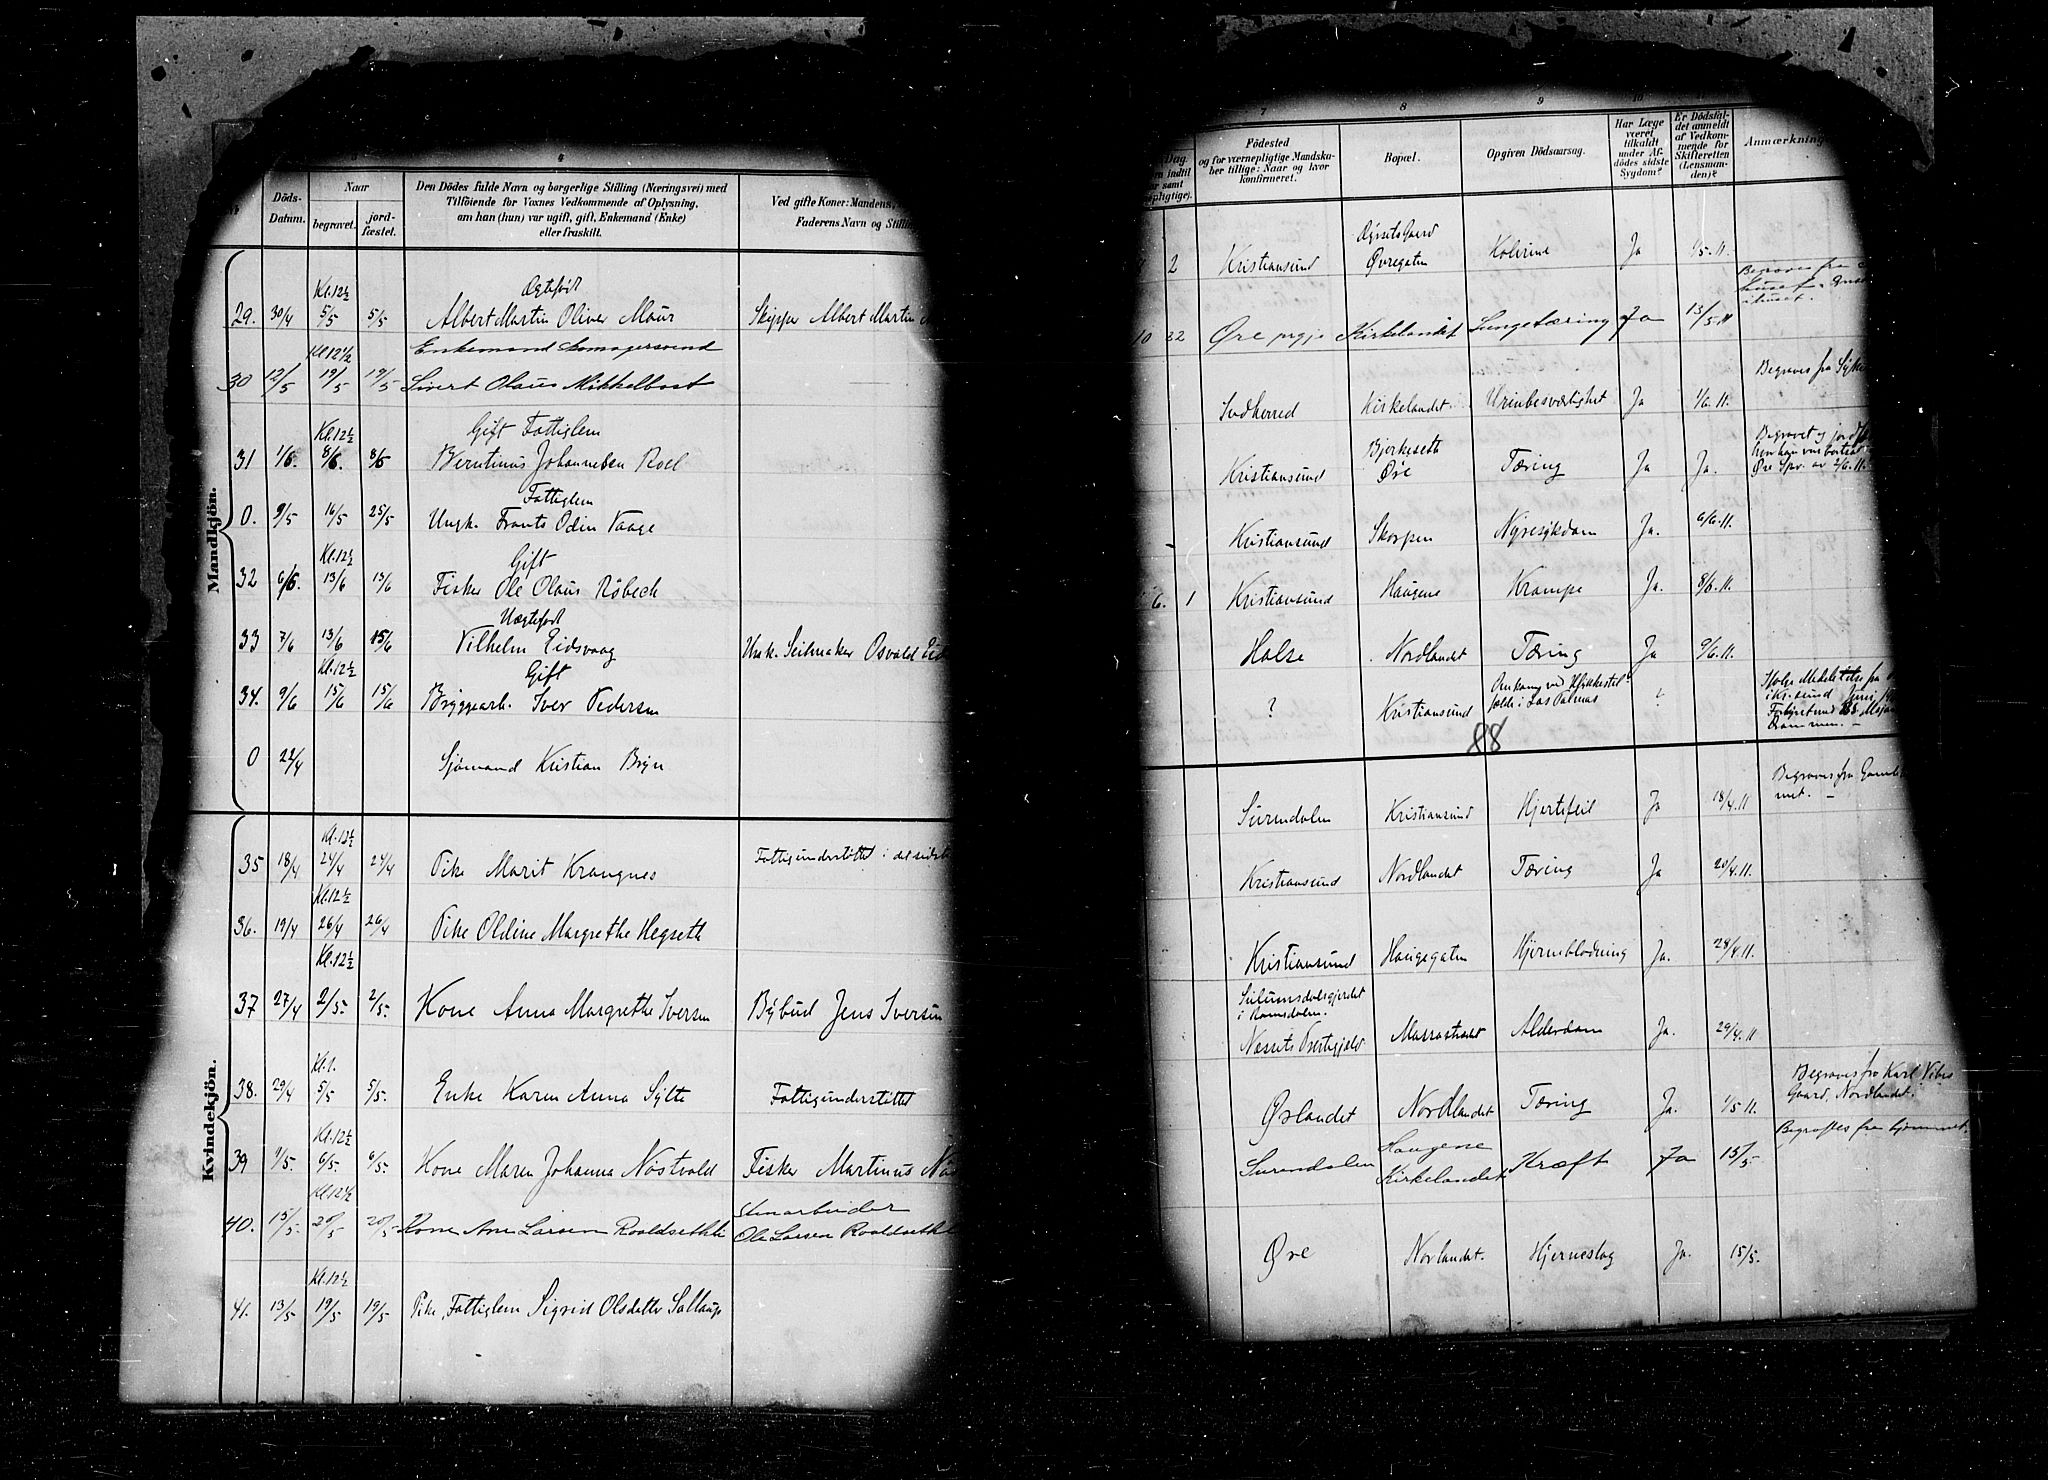 3
4
Döds-
Datum.
Naar
begravet.
jord-
fæstet.
Den Dödes fulde Navn og borgerlige Stilling (Næringsvei) med
Tilföiende for Voxnes Vedkommende af Oplysning,
om han (hun) var ugift, gift, Enkemand (Enke)
eller fraskilt.
Ved gifte Koner: Mandens,
Faderens Navn og Stilling
Mandkjön.
Ægtefødt
Kl. 12½
29. 30/4 5/5 5/5 Albert Martin Oliver Maur Skipper Albert Martin
Kl 12½ Enkemand
30 12/5 19/5 19/5 Sivert Olaus Mikkelbost
Kl. 12½ Gift Fattiglem
31 1/6. 8/6. 8/6 Berntinus Johannessen Roel
Fattiglem
0. 9/5 16/5 25/5 Ungk. Frants Odin Vaage
Kl. 12½ Gift
32 6/6. 13/6 13/6 Fisker Ole Olaus Røbech
Uægtefødt
33 7/6 13/6 15/6 Vilhelm Eidsvaag Unk. Seilmaker Osvald Eid
Kl. 12½ Gift
34. 9/6 15/6 15/6 Bryggearb. Iver Pedersen
0 22/4 Sjømand Kristian Bryn
Kvindekjön.
Kl. 12½
35 18/4 24/4 24/4 Pike Marit Krangnes Fattigunderstøttet i det sidste
Kl. 12½
36. 19/4 26/4 26/4 Pike Oldine Margrethe Hegseth
Kl. 12½
37 27/4 2/5. 2/5. Kone Anna Margrethe Iversen Bybud Jens Iversen
Kl. 1.
38. 29/4 5/5 5/5. Enke Karen Anna Sylte Fattigunderstøttet
Kl. 12½
39 1/5. 6/5. 6/5. Kone Maren Johanna Nøstvold Fisker Martinus Nøs
Kl 12½ Stenarbeider
40. 15/5. 20/5 20/5 Kone Ane Larsen Roaldsethli Ole Larsen Roaldsethli
Kl. 12½
41. 13/5. 19/5 19/5. Pike, Fattiglem Sigrid Olsdatter
7
8
9
10
Dag.
Födested
og for værnepligtige Mandska-
ber tillige: Naar og hvor
konfirmeret.
Bopæl.
Opgiven Dödsaarsag.
Har Læge
været
tilkaldt
under Af-
dödes sidste
Sygdom?
Er Dödsfal-
det anmeldt
af Vedkom-
mende for
Skifteretten
(Lensman-
den)?
Anmærkning
2 Kristiansund Øvregaten Kolerine Ja 1/5. 11.
Begraves fra
10 22 Øre prgj. Kirkelandet Lungetæring Ja 13/5 11
Begraves fra Syke
Sudherred Kirkelandet Urinbesværlighet Ja 1/6. 11.
Bjerkeseth
Kristiansund Øre Tæring Ja Ja.
Begravet og jordf
Kristiansund Skorpen Nyresykdom Ja. 6/6. 11.
6. 1 Kristiansund Haugene Krampe Ja. 8/6. 11.
Halse Nordlandet Tæring Ja 9/6. 11.
? Kristiansund Omkom ved Ulykkestil-
fælde i Las Palmas ?
88
Begraves fra Gamle
Surendalen Kristiansund Hjertefeil Ja 18/4. 11
Kristiansund Nordlandet Tæring Ja 20/4. 11.
Kristiansund Haugegaten Hjerneblødning Ja. 28/4. 11.
i Romsdalen.
Nessets Prestegjeld Alderdom Ja. 29/4. 11
Begraves fra Karl Vibes
Gaard, Nordlandet.
Ørlandet Nordlandet Tæring Ja. 1/5 11.
Begraves fra hjemmet.
Haugene
Surendalen Kirkelandet Kræft Ja 15/5.
Øre Norlandet. Hjerneslag Ja. 15/5.